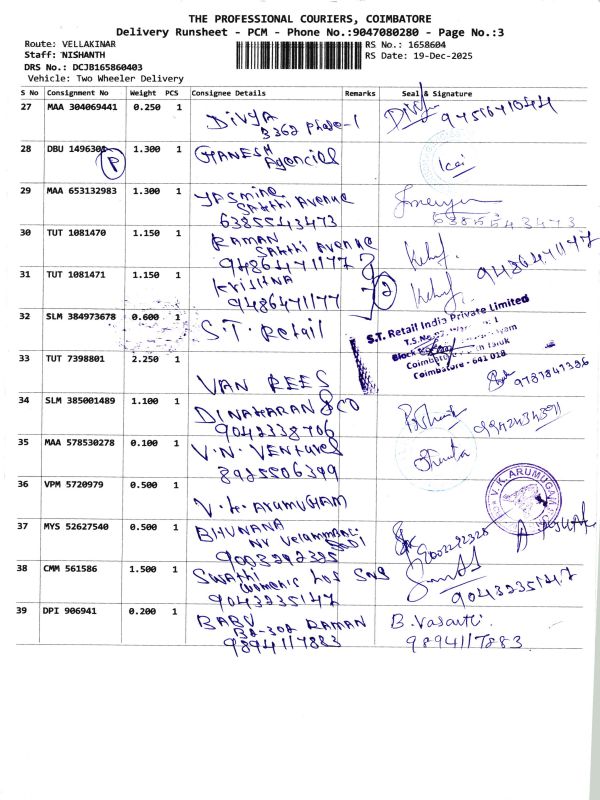 THE PROFESSIONAL COURIERS, COIMBATORE
Delivery Runsheet - PCM - Phone No.:9047080280 - Page No.:3
Route: VELLAKINAR
RS No.: 1658604
Staff: NISHANTH
RS Date: 19-Dec-2025
DRS No.: DCJB165860403
Vehicle: Two Wheeler Delivery
S No Consignment No Weight PCS Consignee Details Remarks Seal & Signature
27 MAA 304069441 0.250 1 Divya
3362 phase-1
28 DBU 1496305 1.300 1 GANESH
Agencies
P
29 MAA 653132983 1.300 1 YASmine
Sakthi Avenue
6385543473
6385543473
30 TUT 1081470 1.150 1 RAMAN
Sakthi Avenue
9486471177
9486471177
31 TUT 1081471 1.150 1 Krishna
9486471177
2
32 SLM 384973678 0.600 1 S.T. Retail
S.T. Retail India Private Limited
Coimbatore - 641 018
33 TUT 7398801 2.250 1 VAN REES
9787847386
34 SLM 385001489 1.100 1 DINAKARAN & CO
9042338706
35 MAA 578530278 0.100 1 V.N. Ventures
8925506399
36 VPM 5720979 0.500 1 V.K. Arumugham
V. K. ARUMUGAM
37 MYS 52627540 0.500 1 BHUNANA
Nr Velammal
9003292328
38 CMM 561586 1.500 1 Swathi
Womens Hos SNS
9043235147
9043235147
39 DPI 906941 0.200 1 BABU
B2-302 RAMAN
9894117883
B. Vasanthi
9894117883